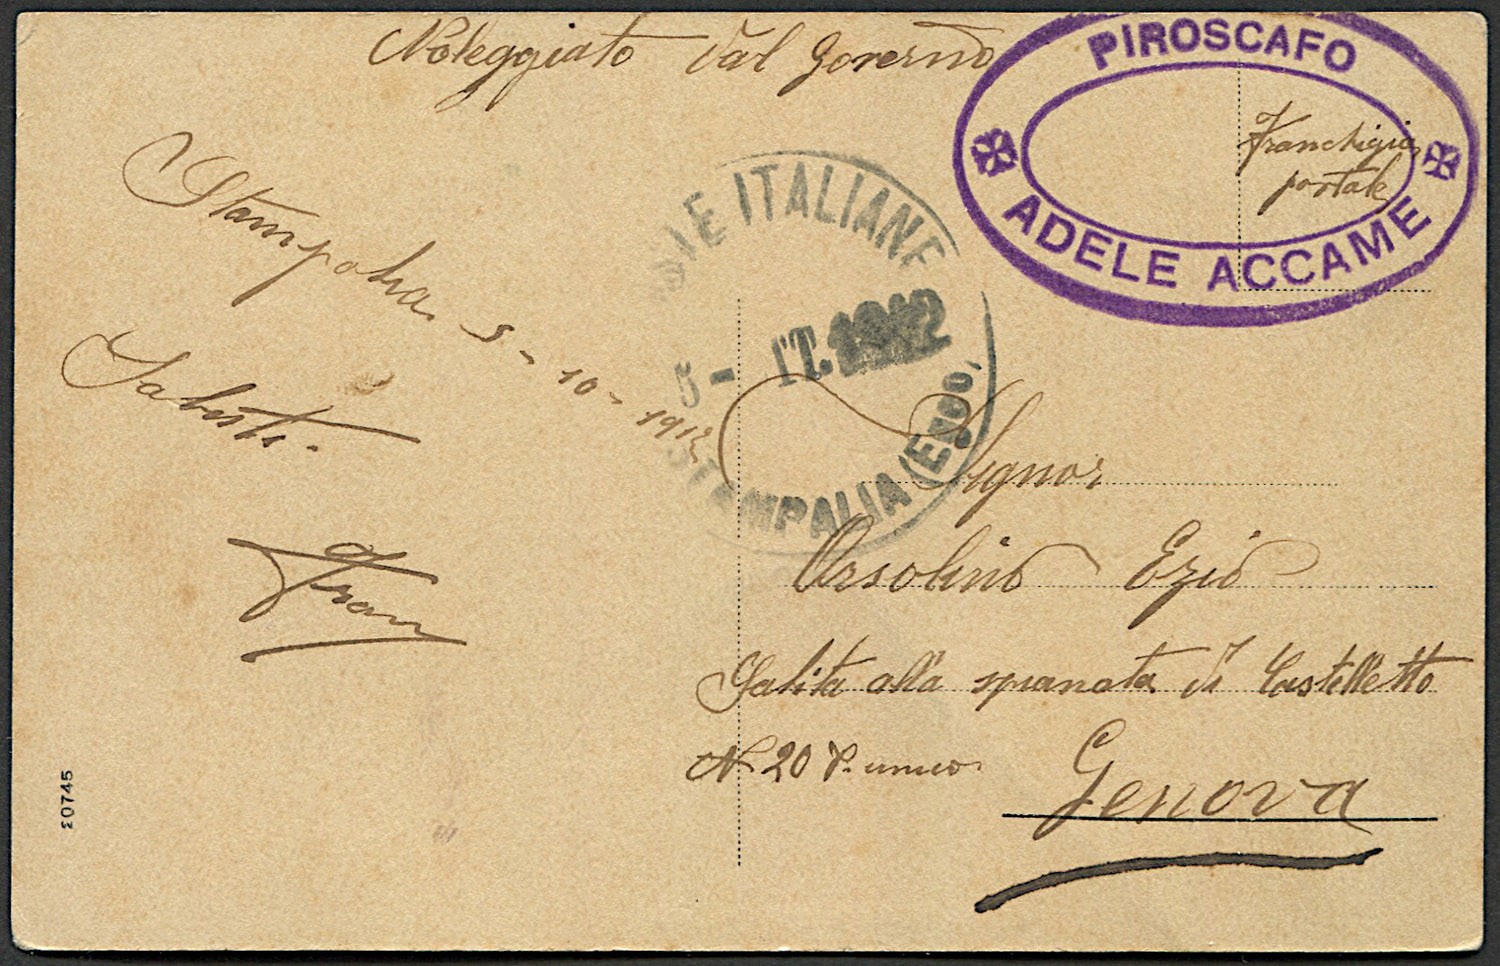 Noleggiato dal Governo
PIROSCAFO
ADELE ACCAME
Franchigia
postale
Stampalia 5-10-1912
IE ITALIANE
5 - TT. 1912
STAMPALIA (Egeo)
Saluti.
Signor
Orsolino Ezio
Salita alla spianata di Castelletto
N 20 P. unico
Genova
20745